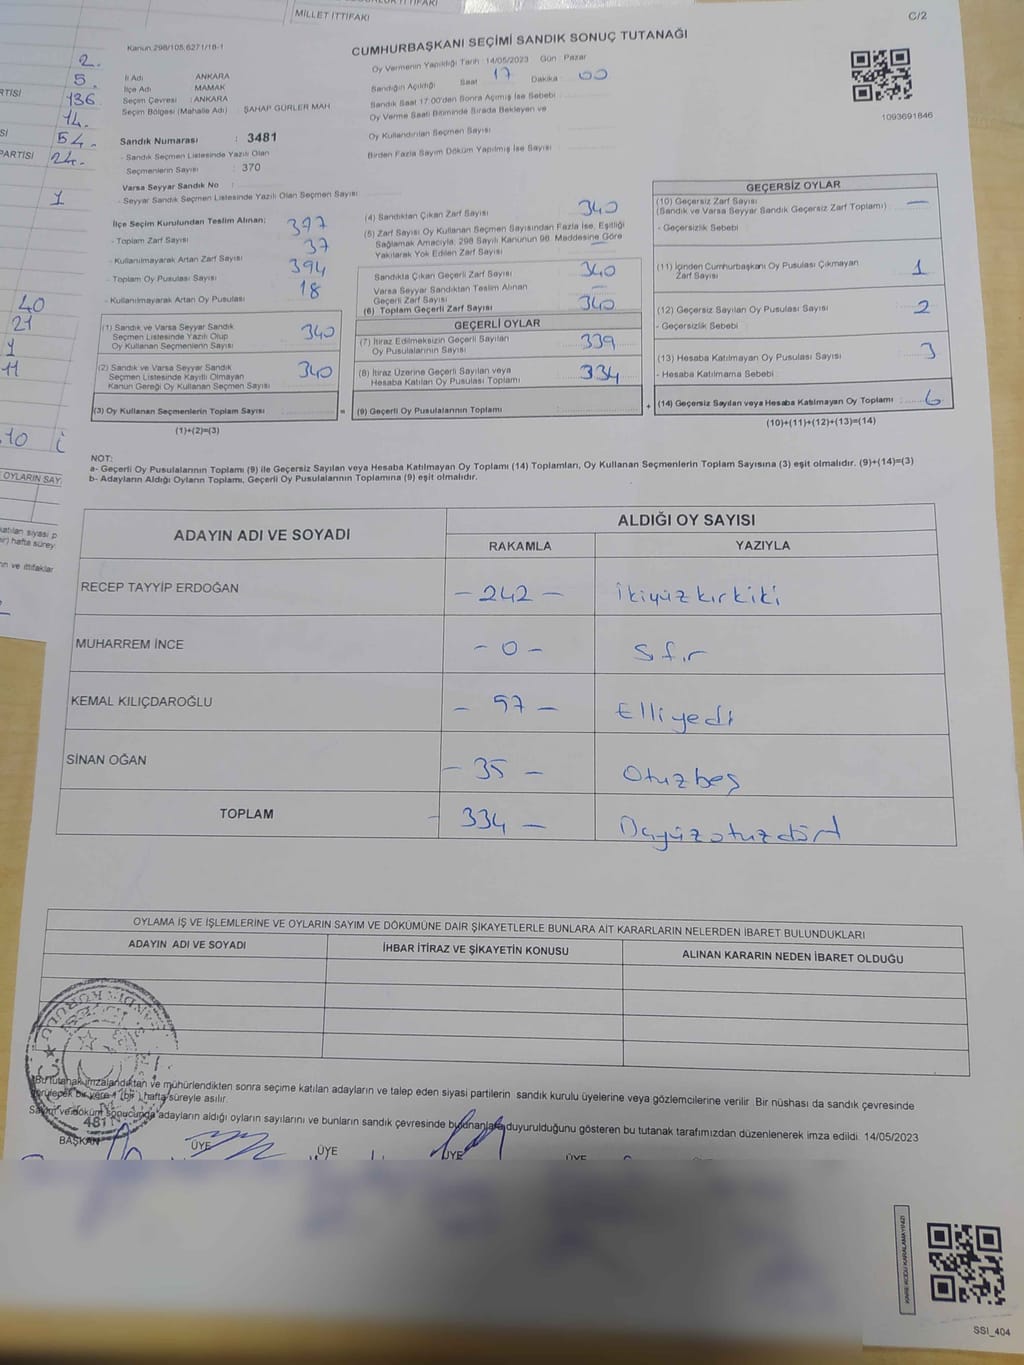 MİLLET İTTİFAKI
C/2
Kanun:298/105,6271/18-1
CUMHURBAŞKANI SEÇİMİ SANDIK SONUÇ TUTANAĞI
Oy Vermenin Yapıldığı Tarih :14/05/2023 Gün : Pazar
İl Adı ANKARA
Sandığın Açıldığı Saat 17 Dakika : 00
İlçe Adı MAMAK
Seçim Çevresi : ANKARA
Sandık Saat 17:00'den Sonra Açılmış İse Sebebi
Seçim Bölgesi (Mahalle Adı) : ŞAHAP GÜRLER MAH
Oy Verme Saati Bitiminde Sırada Bekleyen ve
Oy Kullandırılan Seçmen Sayısı
1093691846
Sandık Numarası : 3481
- Sandık Seçmen Listesinde Yazılı Olan
Seçmenlerin Sayısı : 370
Birden Fazla Sayım Döküm Yapılmış İse Sayısı :
Varsa Seyyar Sandık No :
- Seyyar Sandık Seçmen Listesinde Yazılı Olan Seçmen Sayısı
İlçe Seçim Kurulundan Teslim Alınan:
- Toplam Zarf Sayısı 377
- Kullanılmayarak Artan Zarf Sayısı 37
- Toplam Oy Pusulası Sayısı 394
- Kullanılmayarak Artan Oy Pusulası 18
(1) Sandık ve Varsa Seyyar Sandık
Seçmen Listesinde Yazılı Olup
Oy Kullanan Seçmenlerin Sayısı 340
(2) Sandık ve Varsa Seyyar Sandık
Seçmen Listesinde Kayıtlı Olmayan
Kanun Gereği Oy Kullanan Seçmen Sayısı 340
(3) Oy Kullanan Seçmenlerin Toplam Sayısı : =
(1)+(2)=(3)
(4) Sandıktan Çıkan Zarf Sayısı 340
(5) Zarf Sayısı Oy Kullanan Seçmen Sayısından Fazla İse, Eşitliği
Sağlamak Amacıyla; 298 Sayılı Kanunun 98. Maddesine Göre
Yakılarak Yok Edilen Zarf Sayısı —
Sandıkta Çıkan Geçerli Zarf Sayısı 340
Varsa Seyyar Sandıktan Teslim Alınan
Geçerli Zarf Sayısı —
(6) Toplam Geçerli Zarf Sayısı 340
GEÇERLİ OYLAR
(7) İtiraz Edilmeksizin Geçerli Sayılan
Oy Pusulalarının Sayısı 339
(8) İtiraz Üzerine Geçerli Sayılan veya
Hesaba Katılan Oy Pusulası Toplamı 334
(9) Geçerli Oy Pusulalarının Toplamı : +
GEÇERSİZ OYLAR
(10) Geçersiz Zarf Sayısı
(Sandık ve Varsa Seyyar Sandık Geçersiz Zarf Toplamı) : —
- Geçersizlik Sebebi
(11) İçinden Cumhurbaşkanı Oy Pusulası Çıkmayan
Zarf Sayısı 1
(12) Geçersiz Sayılan Oy Pusulası Sayısı 2
- Geçersizlik Sebebi
(13) Hesaba Katılmayan Oy Pusulası Sayısı 3
- Hesaba Katılmama Sebebi
(14) Geçersiz Sayılan veya Hesaba Katılmayan Oy Toplamı : 6
(10)+(11)+(12)+(13)=(14)
NOT:
a- Geçerli Oy Pusulalarının Toplamı (9) ile Geçersiz Sayılan veya Hesaba Katılmayan Oy Toplamı (14) Toplamları, Oy Kullanan Seçmenlerin Toplam Sayısına (3) eşit olmalıdır. (9)+(14)=(3)
b- Adayların Aldığı Oyların Toplamı, Geçerli Oy Pusulalarının Toplamına (9) eşit olmalıdır.
ADAYIN ADI VE SOYADI ALDIĞI OY SAYISI
RAKAMLA YAZIYLA
RECEP TAYYİP ERDOĞAN - 242 - İkiyüzkırkiki
MUHARREM İNCE - 0 - Sıfır
KEMAL KILIÇDAROĞLU - 57 - Elliyedi
SİNAN OĞAN - 35 - Otuzbeş
TOPLAM - 334 - Üçyüzotuzdört
OYLAMA İŞ VE İŞLEMLERİNE VE OYLARIN SAYIM VE DÖKÜMÜNE DAİR ŞİKAYETLERLE BUNLARA AİT KARARLARIN NELERDEN İBARET BULUNDUKLARI
ADAYIN ADI VE SOYADI İHBAR İTİRAZ VE ŞİKAYETİN KONUSU ALINAN KARARIN NEDEN İBARET OLDUĞU
Bu tutanak imzalandıktan ve mühürlendikten sonra seçime katılan adayların ve talep eden siyasi partilerin sandık kurulu üyelerine veya gözlemcilerine verilir. Bir nüshası da sandık çevresinde
görülecek bir yere 1 (bir) hafta süreyle asılır.
Sayım ve döküm sonucunda adayların aldığı oyların sayılarını ve bunların sandık çevresinde bulunanlara duyurulduğunu gösteren bu tutanak tarafımızdan düzenlenerek imza edildi. 14/05/2023
BAŞKAN ÜYE ÜYE ÜYE ÜYE
KARE KODU KARALAMAYINIZ
SSI_404
2.
5.
136
14.
54.
PARTİSİ 24.
1
40
21
1
11
10
OYLARIN SAY